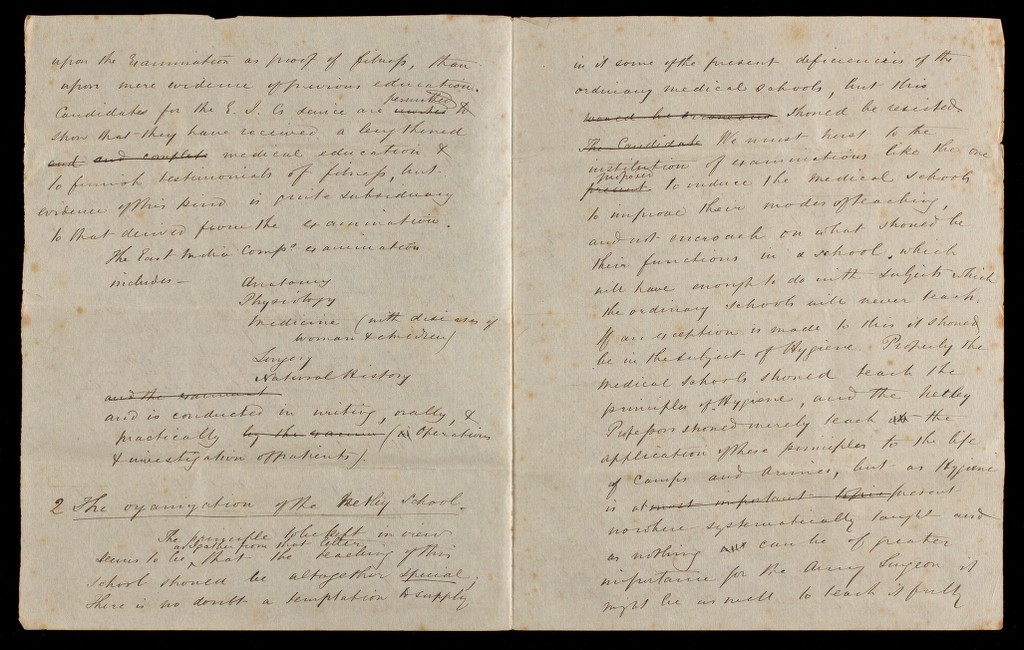 upon the Examination as proof of fitness, than
upon mere evidence of previous education.
Candidates for the E. I. Cs service are permitted to
show that they have received a lengthened
and complete medical education &
to furnish testimonials of fitness, but
evidence of this kind is quite subsidiary
to that derived from the examination.
The East India Compy examination
includes — Anatomy
Physiology
Medicine (with diseases of
women & children)
Surgery
Natural History
and the
and is conducted in writing, orally, &
practically by the (in Operations
& investigation of patients).
2 The organization of the Netley School.
The principle to be kept in view
as I gather from that letter,
seems to be, that the teaching of this
school should be altogether special;
There is no doubt a temptation to supply
in it some of the present deficiencies of the
ordinary medical schools, but this
would be should be resisted.
The Candidate We must trust to the
institution of examinations like the one
proposed
present to induce the medical schools
to improve their modes of teaching,
and not encroach on what should be
their functions in a school, which
will have enough to do with subjects which
the ordinary schools will never teach.
If an exception is made to this it should
be in the subject of Hygiene. Properly the
medical schools should teach the
principles of Hygiene, and the Netley
Professor should merely teach the
application of these principles to the life
of camps and armies, but as Hygiene
is at most important topic present
nowhere systematically taught and
as nothing can be of greater
importance for the Army Surgeon it
might be as well to teach it fully